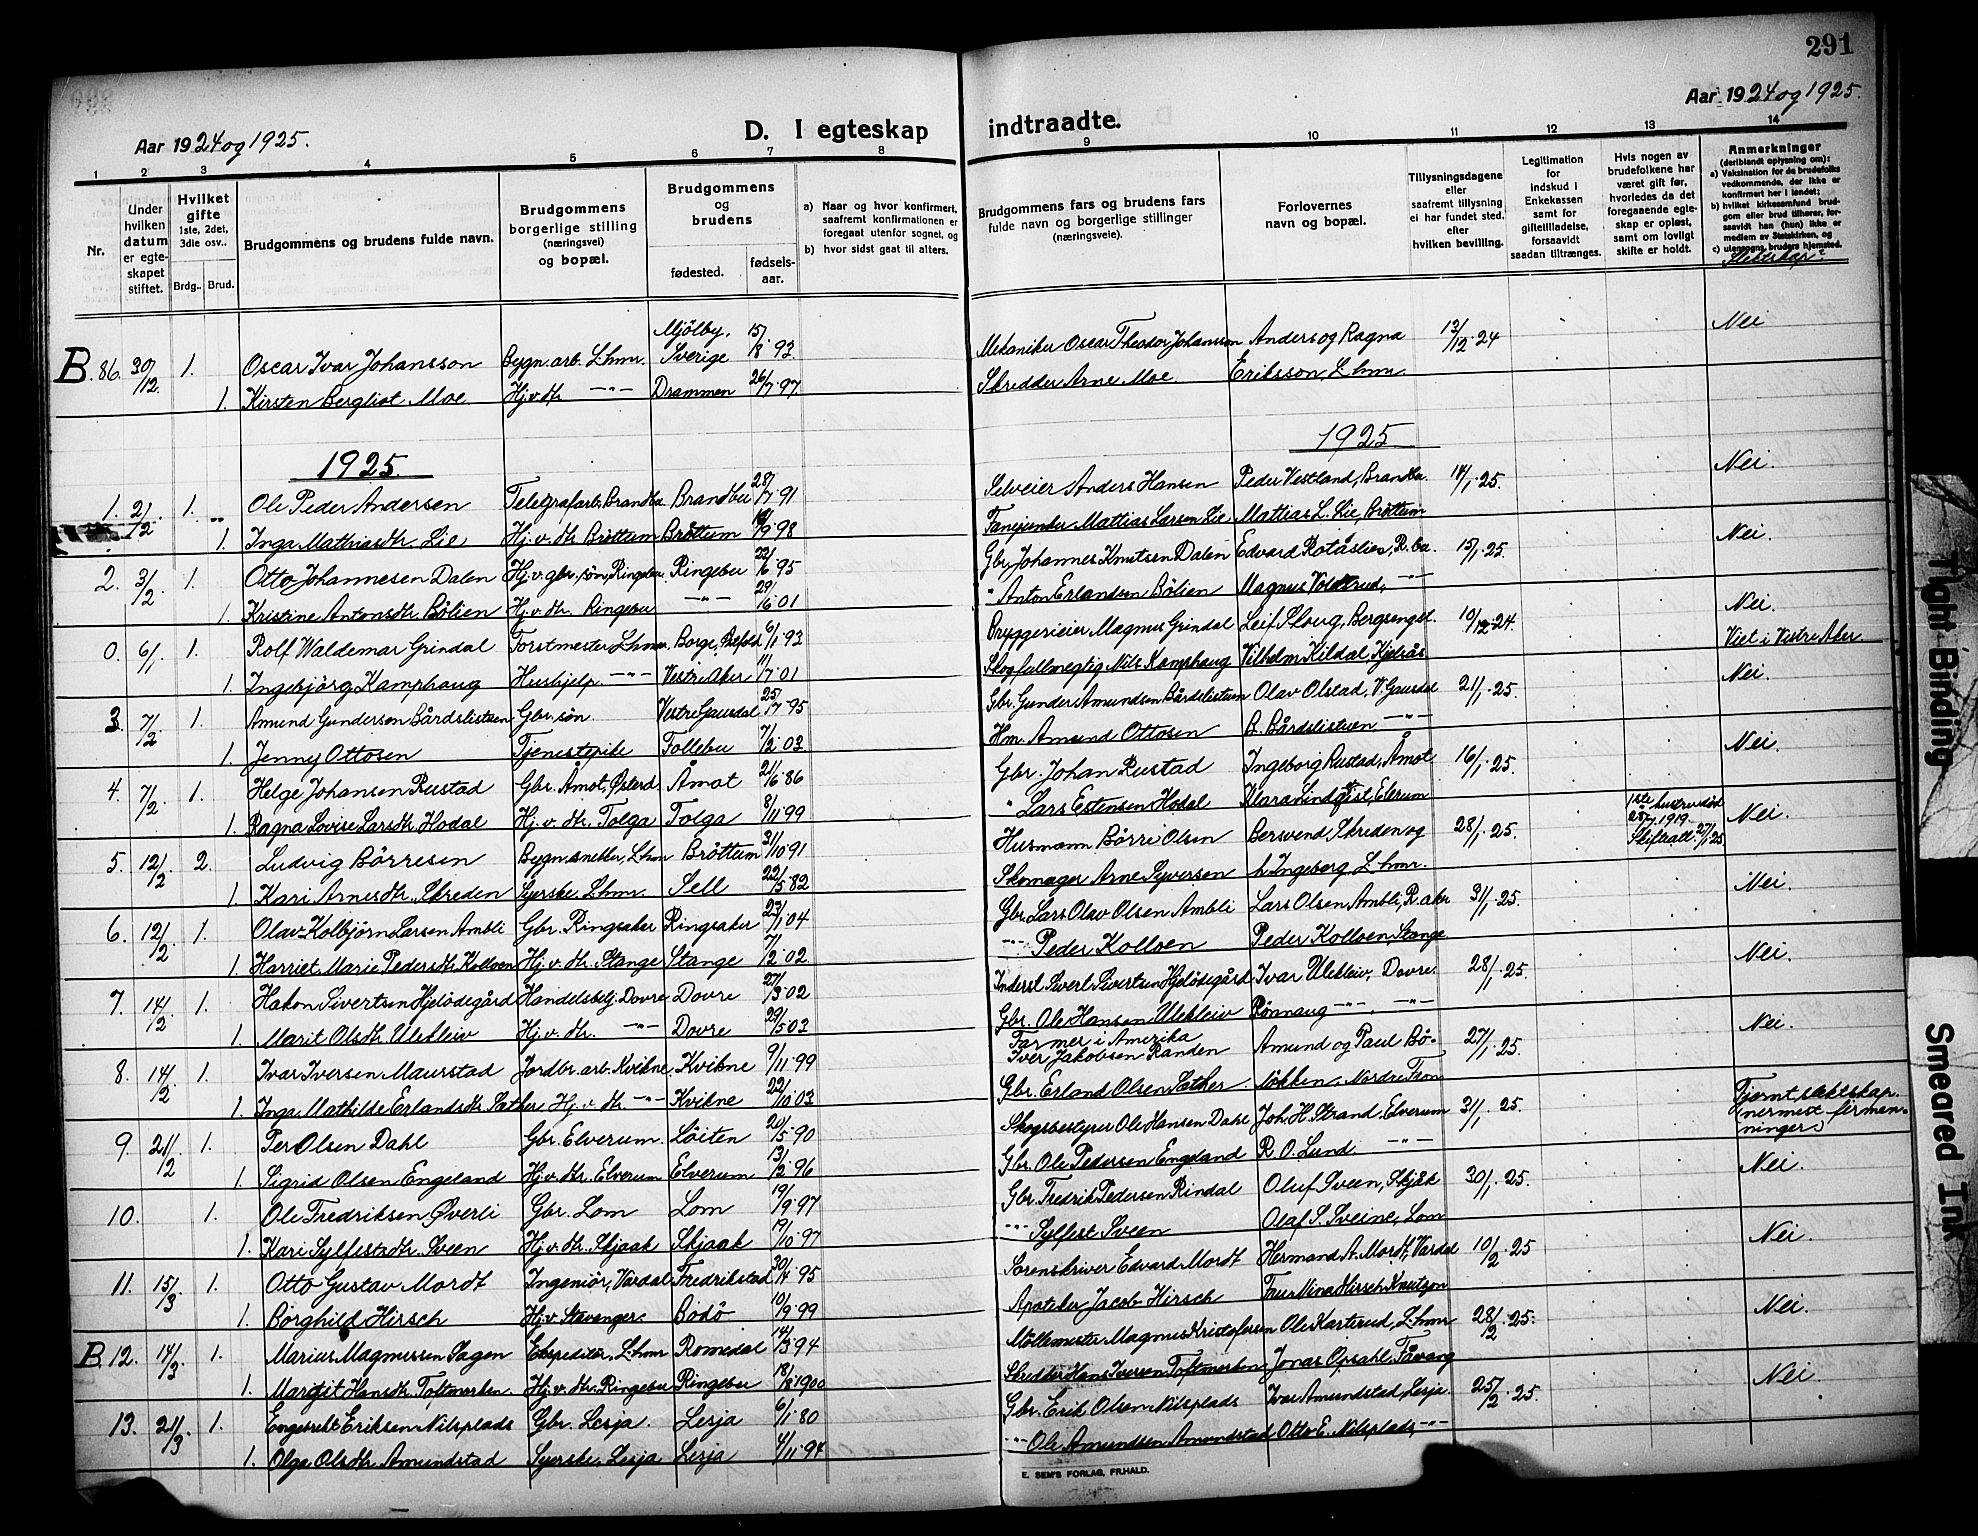 291
Aar 1924 og 1925.
Aar 1924 og 1925.
D. I egteskap indtraadte.
1 2 3 4 5 6 7 8 9 10 11 12 13 14
Nr.
Under hvilken datum er egteskapet stiftet.
Hvilket gifte 1ste, 2det, 3die osv..
Brdg.. Brud.
Brudgommens og brudens fulde navn.
Brudgommens borgerlige stilling (næringsvei) og bopæl.
Brudgommens og brudens
fødested.
fødselsaar.
a) Naar og hvor konfirmert, saafremt konfirmationen er foregaat utenfor sognet, og
b) hvor sidst gaat til alters.
Brudgommens fars og brudens fars fulde navn og borgerlige stillinger (næringsveie).
Forlovernes navn og bopæl.
Tillysningsdagene eller saafremt tillysning ei har fundet sted. efter hvilken bevilling.
Legitimation for indskud i Enkekassen samt for giftetilladelse, forsaavidt saadan tiltrænges.
Hvis nogen av brudefolkene har været gift før, hvorledes da det foregaaende egteskap er opløst, samt om lovligt skifte er holdt.
Anmerkninger (deriblandt oplysning om):
a) Vaksination for de brudefolks vedkommende, der ikke er konfirmert her i landet;
b) hvilket kirkesamfund brudgom eller brud tilhører, forsaavidt han (hun) ikke er medlem av Statskirken, og
c) utensogns bruders hjemsted.
Slektskap?
B. 86. 30/12. 1. Oscar Ivar Johansson Bygn.arb. L.hmr. Mjölby, Sverige 15/8 93 Mekaniker Oscar Theodor Johansson Anders og Ragna 13/12 24 Nei
1. Kirsten Bergliot Moe Hj.v.dtr —"— Drammen 26/7 97 Skredder Arne Moe. Eriksson, L.hmr.
1925. 1925
1. 21/2 1. Ole Peder Andersen Telegrafarb. Brandbu Brandbu 28/7 91 Selveier Anders Hansen Peder Vestland, Brandbu. 14/1 25. Nei.
1. Inga Mathiasdtr. Lie Hj.v.dtr Bröttum Bröttum 9 98 Fanejunker Mattias Larsen Lie Mattias L. Lie, Bröttum
2. 3/2 1. Otto Johannesen Dalen Hj.v.gbr.sön, Ringebu Ringebu 22/6 95 Gbr. Johannes Knutsen Dalen Edvard Rotåslien, R.bu. 15/1 25. Nei.
1. Kristine Antonsdtr. Bölien Hj.v.dtr. Ringebu —"— 29/6 01 " Anton Erlandsen Bölien Magnus —"—
0. 6/1 1. Rolf Waldemar Grindal Forstmester L.hmr. Borge, 6/1 93 Bryggerieier Magnus Grindal Leif Skoug, Bergsenget 10/12 24. Nei.
1. Ingebjörg Kamphaug Hushjelp. —"— Vestre Aker 11/7 01 Skogfullmegtig Nils Kamphaug Vilhelm Kildal, Kjelsås Viet i Vestre Aker
3. 7/2 1. Amund Gundersen Bårdslistuen Gbr.sön. Vestre Gausdal 25/7 95 Gbr. Gunder Amundsen Bårdslistuen Olav Olstad, V. Gausdal 21/1 25. Nei.
1. Jenny Ottosen Tjenestepike Follebu 7/2 03 Hm. Amund Ottosen B. Bårdslistuen —"—
4. 7/2 1. Helge Johansen Rustad Gbr. Åmot, Österd. Åmot 21/6 86 Gbr. Johan Rustad Ingeborg Rustad, Åmot 16/1 25. Nei.
1. Ragna Lovise Larsdtr. Hodal Hj.v.dtr. Tolga Tolga 8/11 99 " Lars Estensen Hodal Klara Lindqvist, Elverum
5. 12/2 2. Ludvig Börresen Bygn.snekker, L.hmr Bröttum 31/10 91 Husmann Börre Olsen Bersvend, Skreden og 28/1 25. 1ste hustru död 1919. Skifteatt. 27/1 25 Nei.
1. Kari Arnesdtr. Skreden Syerske, L.hmr. Sell 22/5 82 Skomager Arne Syversen h. Ingeborg L.hmr.
6. 12/2 1. Olav Kolbjörn Larsen Ambli Gbr. Ringsaker Ringsaker 23/1 04 Gbr. Lars Olav Olsen Ambli Lars Olsen Ambli, R.aker 31/1 25. Nei.
1. Harriet Marie Pedersdtr. Kolloen Hj.v.dtr. Stange Stange 7/2 02 —"— Peder Kolloen Peder Kolloen, Stange
7. 14/2 1. Hakon Sivertsen Hjelödegård Handelsbetj. Dovre Dovre 27/3 02 Inderst Sivert Sivertsen Hjelödegård Ivar Ulekleiv, Dovre. 28/1 25. Nei.
1. Marit Olsdtr. Ulekleiv Hj.v.dtr. —"— Dovre 29/5 03 Gbr. Ole Hansen Ulekleiv Rönnaug —"— —"—
8. 14/2 1. Ivar Iversen Maurstad Jordbr.arb. Kvikne Kvikne 9/11 99 Farmer i Amerika Iver Jakobsen Randen Amund og Paul Bö- 27/1 25. Nei.
1. Inga Mathilde Erlandsdtr. Sæther Hj.v.dtr. —"— Kvikne 22/10 03 Gbr. Erland Olsen Sæther lökken, Nordre Fron
9. 21/2 1. Per Olsen Dahl Gbr. Elverum. Löiten 20/5 90 Skogbestyrer Ole Hansen Dahl Joh. H. Strand, Elverum 31/1 25. Fjernt slektskap. (nermest firmenninger)
1. Sigrid Olsen Engeland Hj.v.dtr. Elverum Elverum 13/2 96 Gbr. Ole Pedersen Engeland R. O. Lund. —"—
10. 1. Ole Fredriksen Øverli Gbr. Lom Lom 19/9 97 Gbr. Fredrik Pedersen Rindal Oluf Sveen, Skjåk 30/1 25. Nei.
1. Kari Sylfestdtr. Sveen Hj.v.dtr. Skjaak Skjaak 19/10 97 —"— Sylfest Sveen Olaf S. Sveine, Lom
11. 15/3 1. Otto Gustav Mordt Ingeniör, Vardal Fredrikstad 30/4 95 Sorenskriver Edvard Mordt Hermand A. Mordt, Vardal 10/2 25 Nei.
1. Borghild Hirsch Hj.v. Stavanger. Bodö 10/9 99 Apoteker Jacob Hirsch Frue Mina Hirsch Knutson
B. 12. 14/3 1. Marius Magnussen Sagen Ekspeditör, L.hmr Romedal 14/3 94 Möllemester Magnus Kristofersen Ole Karterud, L.hmr 28/2 25. Nei.
1. Margit Hansdtr. Toftmerken. Hj.v.dtr. Ringebu Ringebu 18/8 1900 Skredder Hans Iversen Toftmerken Jonas Opsahl, Fåvang
13. 21/3 1. Engebret Eriksen Nilsplads Gbr. Lesja. Lesja 6/1 80 Gbr. Erik Olsen Nilsplads Ivar Amundstad, Lesja. 25/2 25. Nei
1. Olga Olsdtr. Amundstad Syerske, Lesja Lesja 4/11 94 —"— Ole Amundsen Amundstad Otto E. Nilsplads, —"—
E. SEM'S FORLAG, FR.HALD.
Tight Binding
Smeared Ink